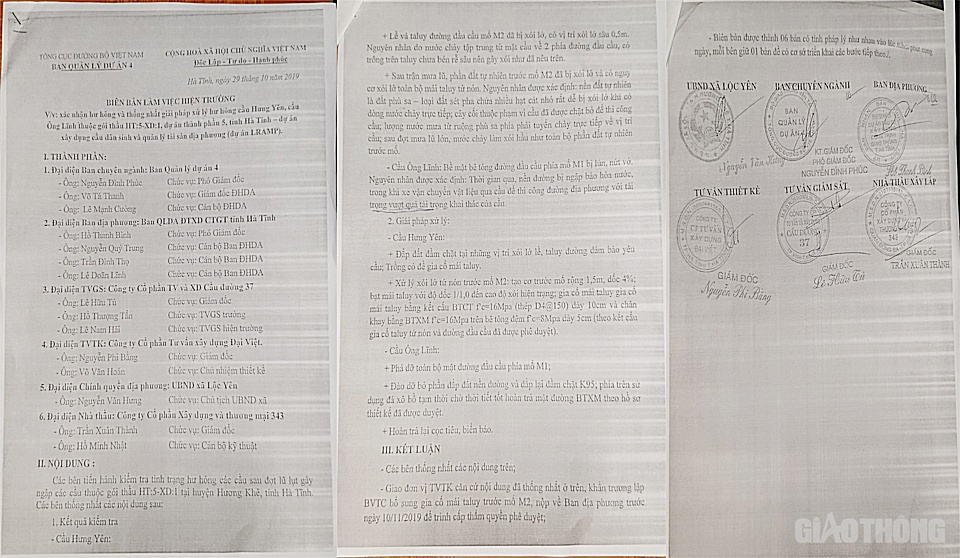 TỔNG CỤC ĐƯỜNG BỘ VIỆT NAM
BAN QUẢN LÝ DỰ ÁN 4
CỘNG HOÀ XÃ HỘI CHỦ NGHĨA VIỆT NAM
Độc Lập - Tự do - Hạnh phúc
Hà Tĩnh, ngày 29 tháng 10 năm 2019
BIÊN BẢN LÀM VIỆC HIỆN TRƯỜNG
V/v: xác nhận hư hỏng và thống nhất giải pháp xử lý hư hỏng cầu Hưng Yên, cầu
Ông Lĩnh thuộc gói thầu HT:5-XD:1, dự án thành phần 5, tỉnh Hà Tĩnh – dự án
xây dựng cầu dân sinh và quản lý tài sản địa phương (dự án LRAMP).
I. THÀNH PHẦN:
1. Đại diện Ban chuyên ngành: Ban Quản lý dự án 4
- Ông: Nguyễn Đình Phúc Chức vụ: Phó Giám đốc
- Ông: Võ Tá Thanh Chức vụ: Giám đốc ĐHDA
- Ông: Lê Mạnh Cường Chức vụ: Cán bộ ĐHDA
2. Đại diện Ban địa phương: Ban QLDA ĐTXD CTGT tỉnh Hà Tĩnh
- Ông: Hồ Thanh Bình Chức vụ: Phó Giám đốc
- Ông: Nguyễn Quý Trung Chức vụ: Cán bộ Ban ĐHDA
- Ông: Trần Đình Thọ Chức vụ: Cán bộ Ban ĐHDA
- Ông: Lê Doãn Lĩnh Chức vụ: Cán bộ Ban ĐHDA
3. Đại diện TVGS: Công ty Cổ Phần TV và XD Cầu đường 37
- Ông: Lê Hữu Tú Chức vụ: Giám đốc
- Ông: Hồ Thượng Tấn Chức vụ: TVGS trưởng
- Ông: Lê Nam Hải Chức vụ: TVGS hiện trường
4. Đại diện TVTK: Công ty Cổ Phần Tư vấn xây dựng Đại Việt.
- Ông: Nguyễn Phi Bằng Chức vụ: Giám đốc
- Ông: Võ Văn Hoàn Chức vụ: Chủ nhiệm thiết kế
5. Đại diện Chính quyền địa phương: UBND xã Lộc Yên
- Ông: Nguyễn Văn Hưng Chức vụ: Chủ tịch UBND xã
6. Đại diện Nhà thầu: Công ty Cổ Phần Xây dựng và thương mại 343
- Ông: Trần Xuân Thành Chức vụ: Giám đốc
- Ông: Hồ Minh Nhật Chức vụ: Cán bộ kỹ thuật
II. NỘI DUNG :
Các bên tiến hành kiểm tra tình trạng hư hỏng các cầu sau đợt lũ lụt gây
ngập các cầu thuộc gói thầu HT:5-XD:1 tại huyện Hương Khê, tỉnh Hà Tĩnh.
Các bên thống nhất các nội dung sau:
1. Kết quả kiểm tra
- Cầu Hưng Yên:
+ Lề và taluy đường đầu cầu mố M2 đã bị xói lở, có vị trí xói lở sâu 0,5m.
Nguyên nhân do nước chảy tập trung từ mặt cầu về 2 phía đường đầu cầu, cỏ
trồng trên taluy chưa bén rễ sâu nên gây xói như đã nêu trên.
+ Sau trận mưa lũ, phần đất tự nhiên trước mố M2 đã bị xói lở và có nguy
cơ xói lở toàn bộ mái taluy tứ nón. Nguyên nhân được xác định: nền đất tự nhiên
là đất phù sa – loại đất sét pha chứa nhiều hạt cát nhỏ rất dễ bị xói lở khi có
dòng nước chảy trực tiếp; cây cối thuộc phạm vi cầu đã được chặt bỏ để thi công
cầu; lượng nước mưa từ ruộng phù sa phía phải tuyến chảy trực tiếp về vị trí
cầu; sau đợt mưa lũ lớn, nước chảy làm xói hầu như toàn bộ phần đất tự nhiên
trước mố.
- Cầu Ông Lĩnh: Bề mặt bê tông đường đầu cầu phía mố M1 bị lún, nứt vỡ.
Nguyên nhân được xác định: Thời gian qua, nền đường bị ngập bão hòa nước,
trong khi xe vận chuyển vật liệu qua cầu để thi công đường địa phương với tải
trọng vượt quá tải trọng khai thác của cầu.
2. Giải pháp xử lý:
- Cầu Hưng Yên:
+ Đắp đất đầm chặt tại những vị trí xói lở lề, taluy đường đảm bảo yêu
cầu; Trồng cỏ để gia cố mái taluy.
+ Xử lý xói lở tứ nón trước mố M2: tạo cơ trước mố rộng 1,5m, dốc 4%;
bạt mái taluy với độ dốc 1/1,0 đến cao độ xói hiện trạng; gia cố mái taluy gia cố
mái taluy bằng kết cấu BTCT f'c=16Mpa (thép D4@150) dày 10cm và chân
khay bằng BTXM f'c=16Mpa trên bê tông đệm f'c=8Mpa dày 5cm (theo kết cấu
gia cố taluy tứ nón và đường đầu cầu đã được phê duyệt).
- Cầu Ông Lĩnh:
+ Phá dỡ toàn bộ mặt đường đầu cầu phía mố M1;
+ Đào dỡ bỏ phần đắp đất nền đường và đắp lại đầm chặt K95; phía trên sử
dụng đá xô bồ tạm thời chờ thời tiết tốt hoàn trả mặt đường BTXM theo hồ sơ
thiết kế đã được duyệt.
+ Hoàn trả lại cọc tiêu, biển báo.
III. KẾT LUẬN
- Các bên thống nhất các nội dung trên;
- Giao đơn vị TVTK căn cứ nội dung đã thống nhất ở trên, khẩn trương lập
BVTC bổ sung gia cố mái taluy trước mố M2, nộp về Ban địa phương trước
ngày 10/11/2019 để trình cấp thẩm quyền phê duyệt;
- Biên bản được thành 06 bản có tính pháp lý như nhau
ngày, mỗi bên giữ 01 bản để có cơ sở triển khai các bước tiếp theo./.
UBND XÃ LỘC YÊN BAN CHUYÊN NGÀNH BAN ĐỊA PHƯƠNG
BAN
QUẢN LÝ
DỰ ÁN
KT.GIÁM ĐỐC
PHÓ GIÁM ĐỐC
Nguyễn Văn Hưng NGUYỄN ĐÌNH PHÚC Hồ Thanh Bình
TƯ VẤN THIẾT KẾ TƯ VẤN GIÁM SÁT NHÀ THẦU XÂY LẮP
CÔNG TY
CP TƯ VẤN
XÂY DỰNG
ĐẠI VIỆT
CẦU ĐƯỜNG
37
CÔNG TY
CỔ PHẦN
XÂY DỰNG
343
GIÁM ĐỐC GIÁM ĐỐC GIÁM ĐỐC
Nguyễn Phi Bằng Lê Hữu Tú TRẦN XUÂN THÀNH
GIAOTHÔNG